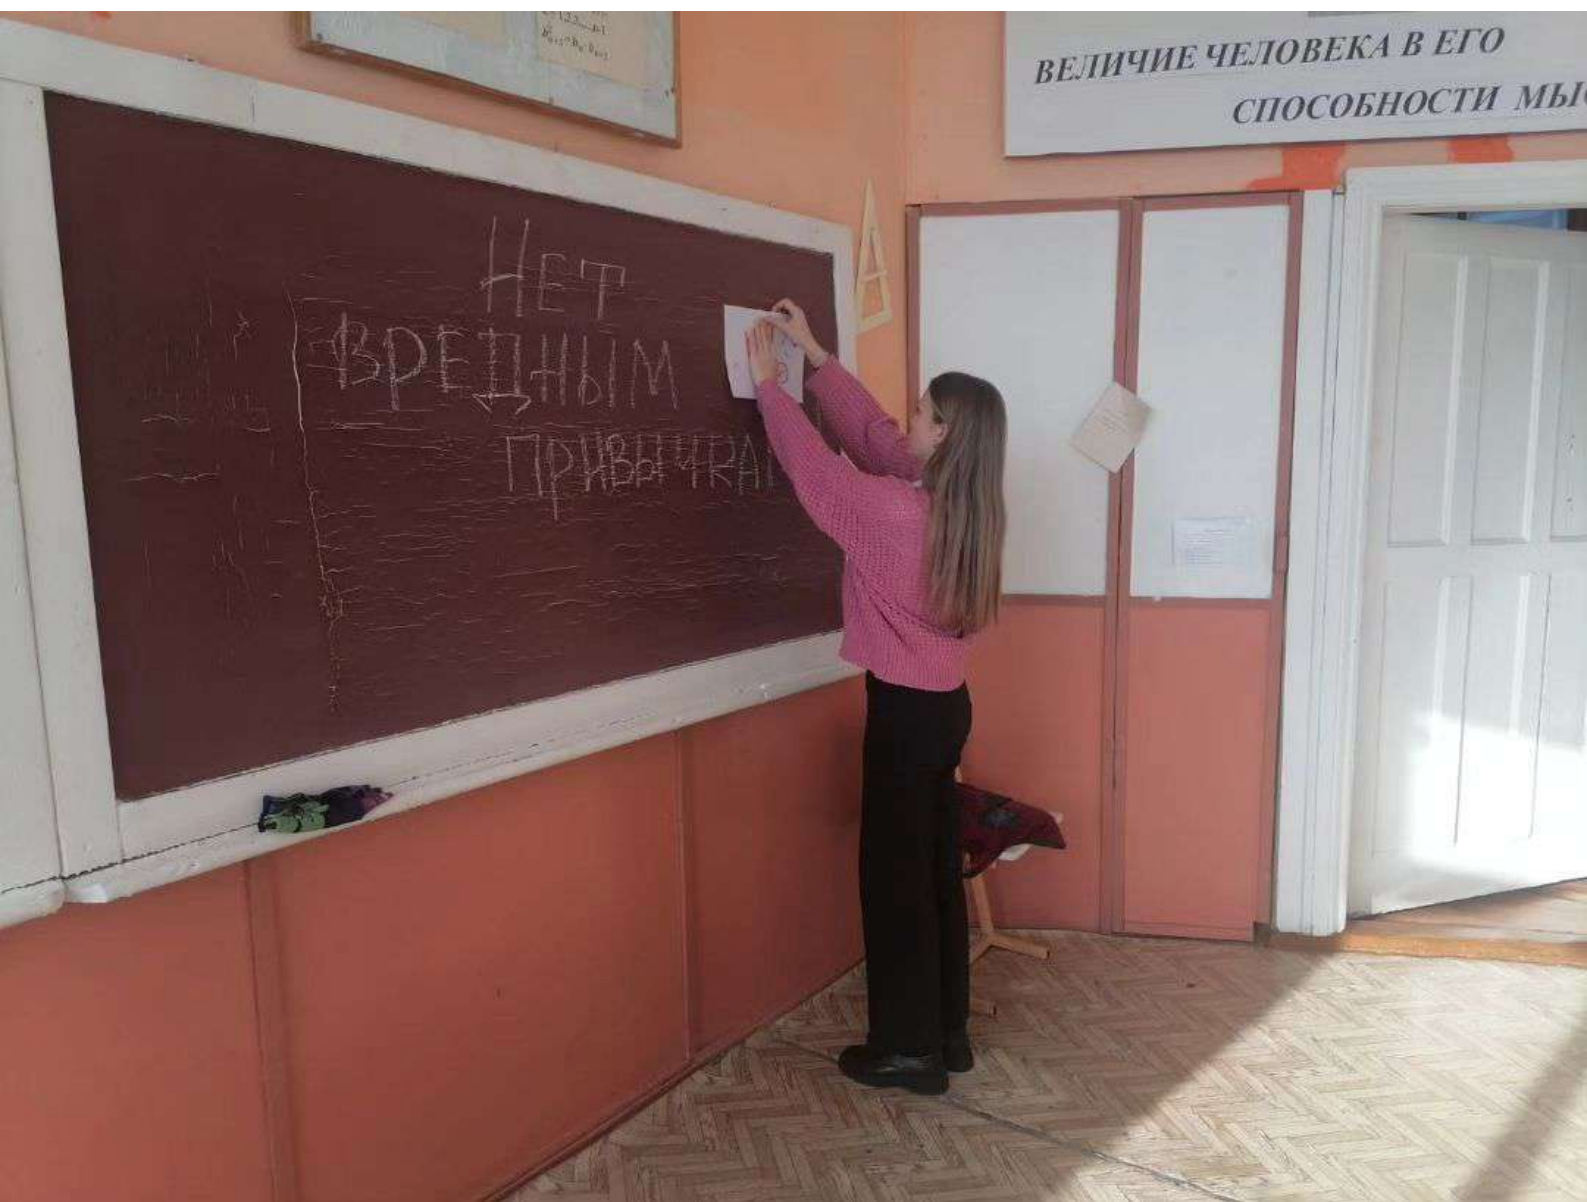 ВЕЛИЧИЕ ЧЕЛОВЕКА В ЕГО
СПОСОБНОСТИ
НЕТ
ВРЕДНЫМ
ПРИВЫЧКА